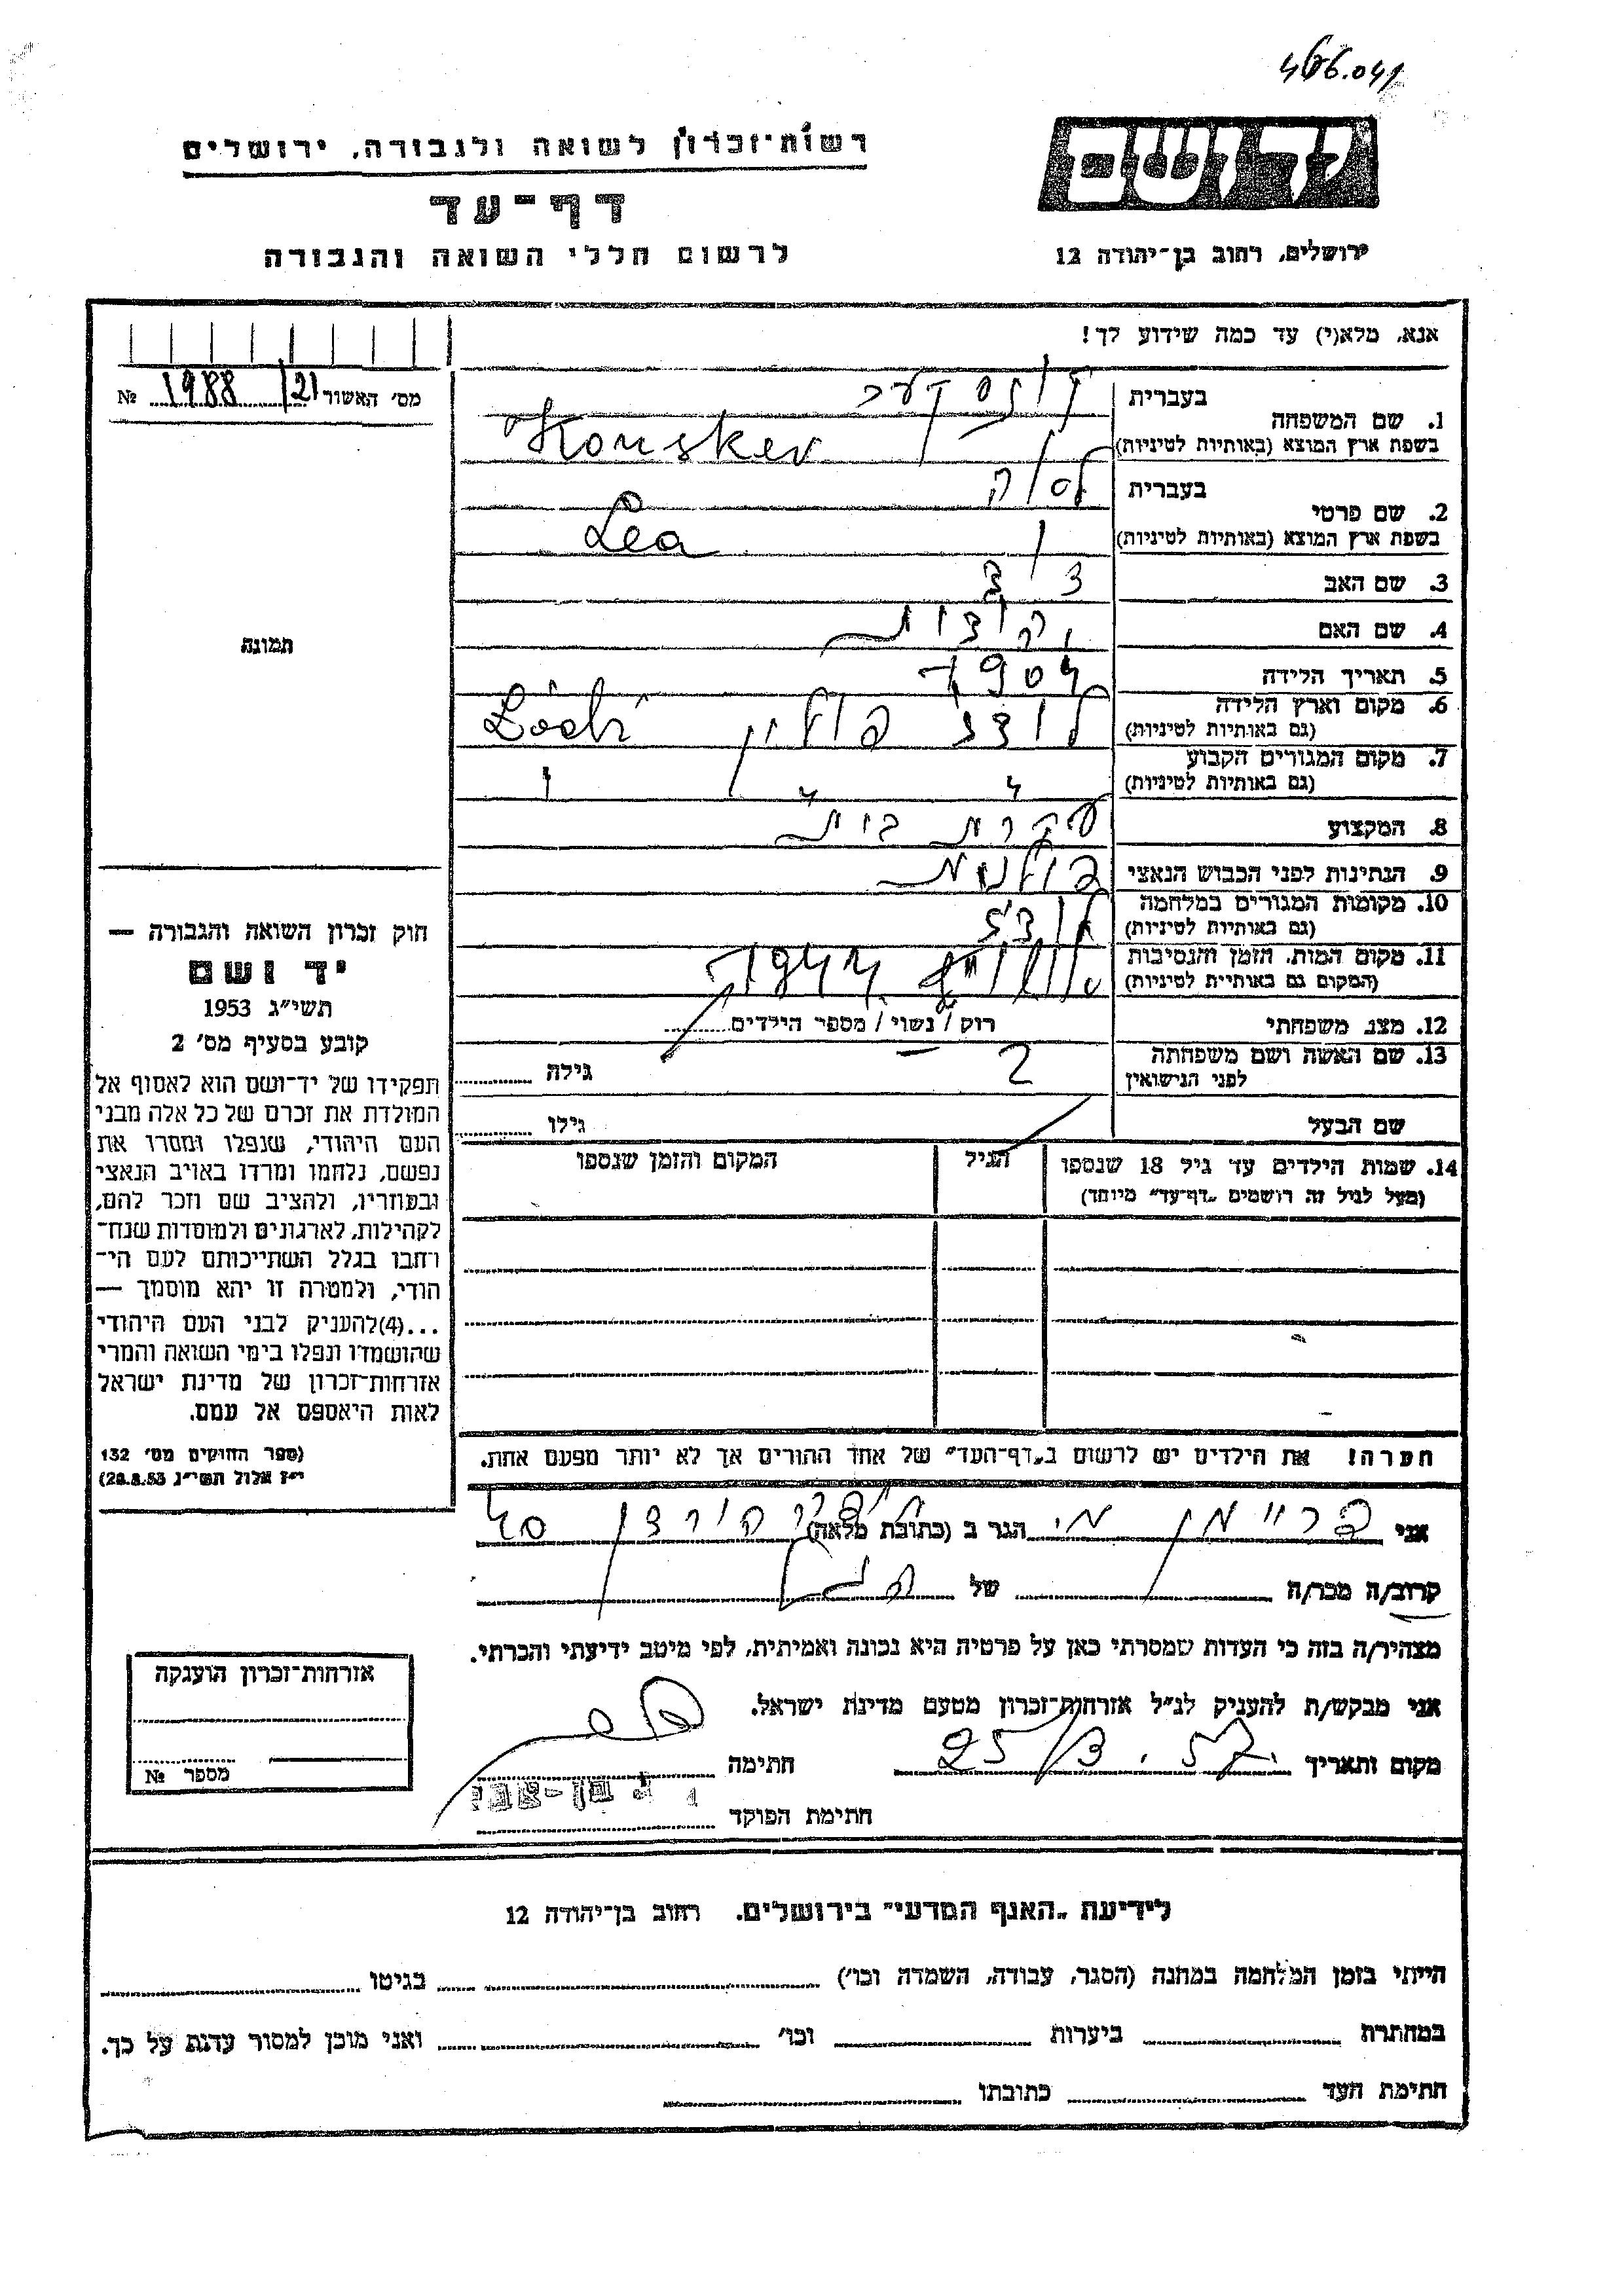 466.041
רשות-זכרון לשואה ולגבורה, ירושלים
דף-עד
לרשום חללי השואה והגבורה
ידושם
ירושלים, רחוב בן-יהודה 12
אנא, מלא(י) עד כמה שידוע לך!
מס' האשור 1988/21 №
1. שם המשפחה
בעברית
בשפת ארץ המוצא (באותיות לטיניות) Konsker
2. שם פרטי
בעברית
בשפת ארץ המוצא (באותיות לטיניות) Lea
3. שם האב
4. שם האם יהודית
5. תאריך הלידה 1904
6. מקום וארץ הלידה
(גם באותיות לטיניות) לודז פולין Łódź
7. מקום המגורים הקבוע
(גם באותיות לטיניות) " "
8. המקצוע עקרת בית
9. הנתינות לפני הכבוש הנאצי פולנית
10. מקומות המגורים במלחמה
(גם באותיות לטיניות) לודז
11. מקום המות, הזמן והנסיבות
(המקום גם באותיית לטיניות) 1944
12. מצב משפחתי רוק / נשוי / מספר הילדים 2
13. שם האשה ושם משפחתה
לפני הנישואין
גילה
שם הבעל גילו
14. שמות הילדים עד גיל 18 שנספו
(מעל לגיל זה רושמים „דף-עד" מיוחד)
הגיל
המקום והזמן שנספו
הערה! את הילדים יש לרשום ב„דף-העד" של אחד ההורים אך לא יותר מפעם אחת.
תמונה
חוק זכרון השואה והגבורה —
יד ושם
תשי"ג 1953
קובע בסעיף מס' 2
תפקידו של יד-ושם הוא לאסוף אל
המולדת את זכרם של כל אלה מבני
העם היהודי, שנפלו ומסרו את
נפשם, נלחמו ומרדו באויב הנאצי
ובעוזריו, ולהציב שם וזכר להם,
לקהילות, לארגונים ולמוסדות שנח-
רחבו בגלל השתייכותם לעם הי-
הודי, ולמטרה זו יהא מוסמך —
...(4)להעניק לבני העם היהודי
שהושמדו ונפלו בימי השואה והמרי
אזרחות-זכרון של מדינת ישראל
לאות היאספם אל עמם.
(ספר החוקים מס' 132
י"ז אלול תשי"ג 28.8.53)
אני ברוימן הגר ב (כתובת מלאה) הירדן 40
קרוב/ה מכר/ה של
מצהיר/ה בזה כי העדות שמסרתי כאן על פרטיה היא נכונה ואמיתית, לפי מיטב ידיעתי והכרתי.
אני מבקש/ת להעניק לנ"ל אזרחות-זכרון מטעם מדינת ישראל.
מקום ותאריך 25/3.57 חתימה
חתימת הפוקד
אזרחות-זכרון הועגקה
מספר №
לידיעת „האגף המדעי" בירושלים. רחוב בן-יהודה 12
הייתי בזמן המלחמה במחנה (הסגר, עבודה, השמדה וכו') בגיטו
במחתרת ביערות וכו' ואני מוכן למסור עדות על כך.
חתימת העד כתובתו